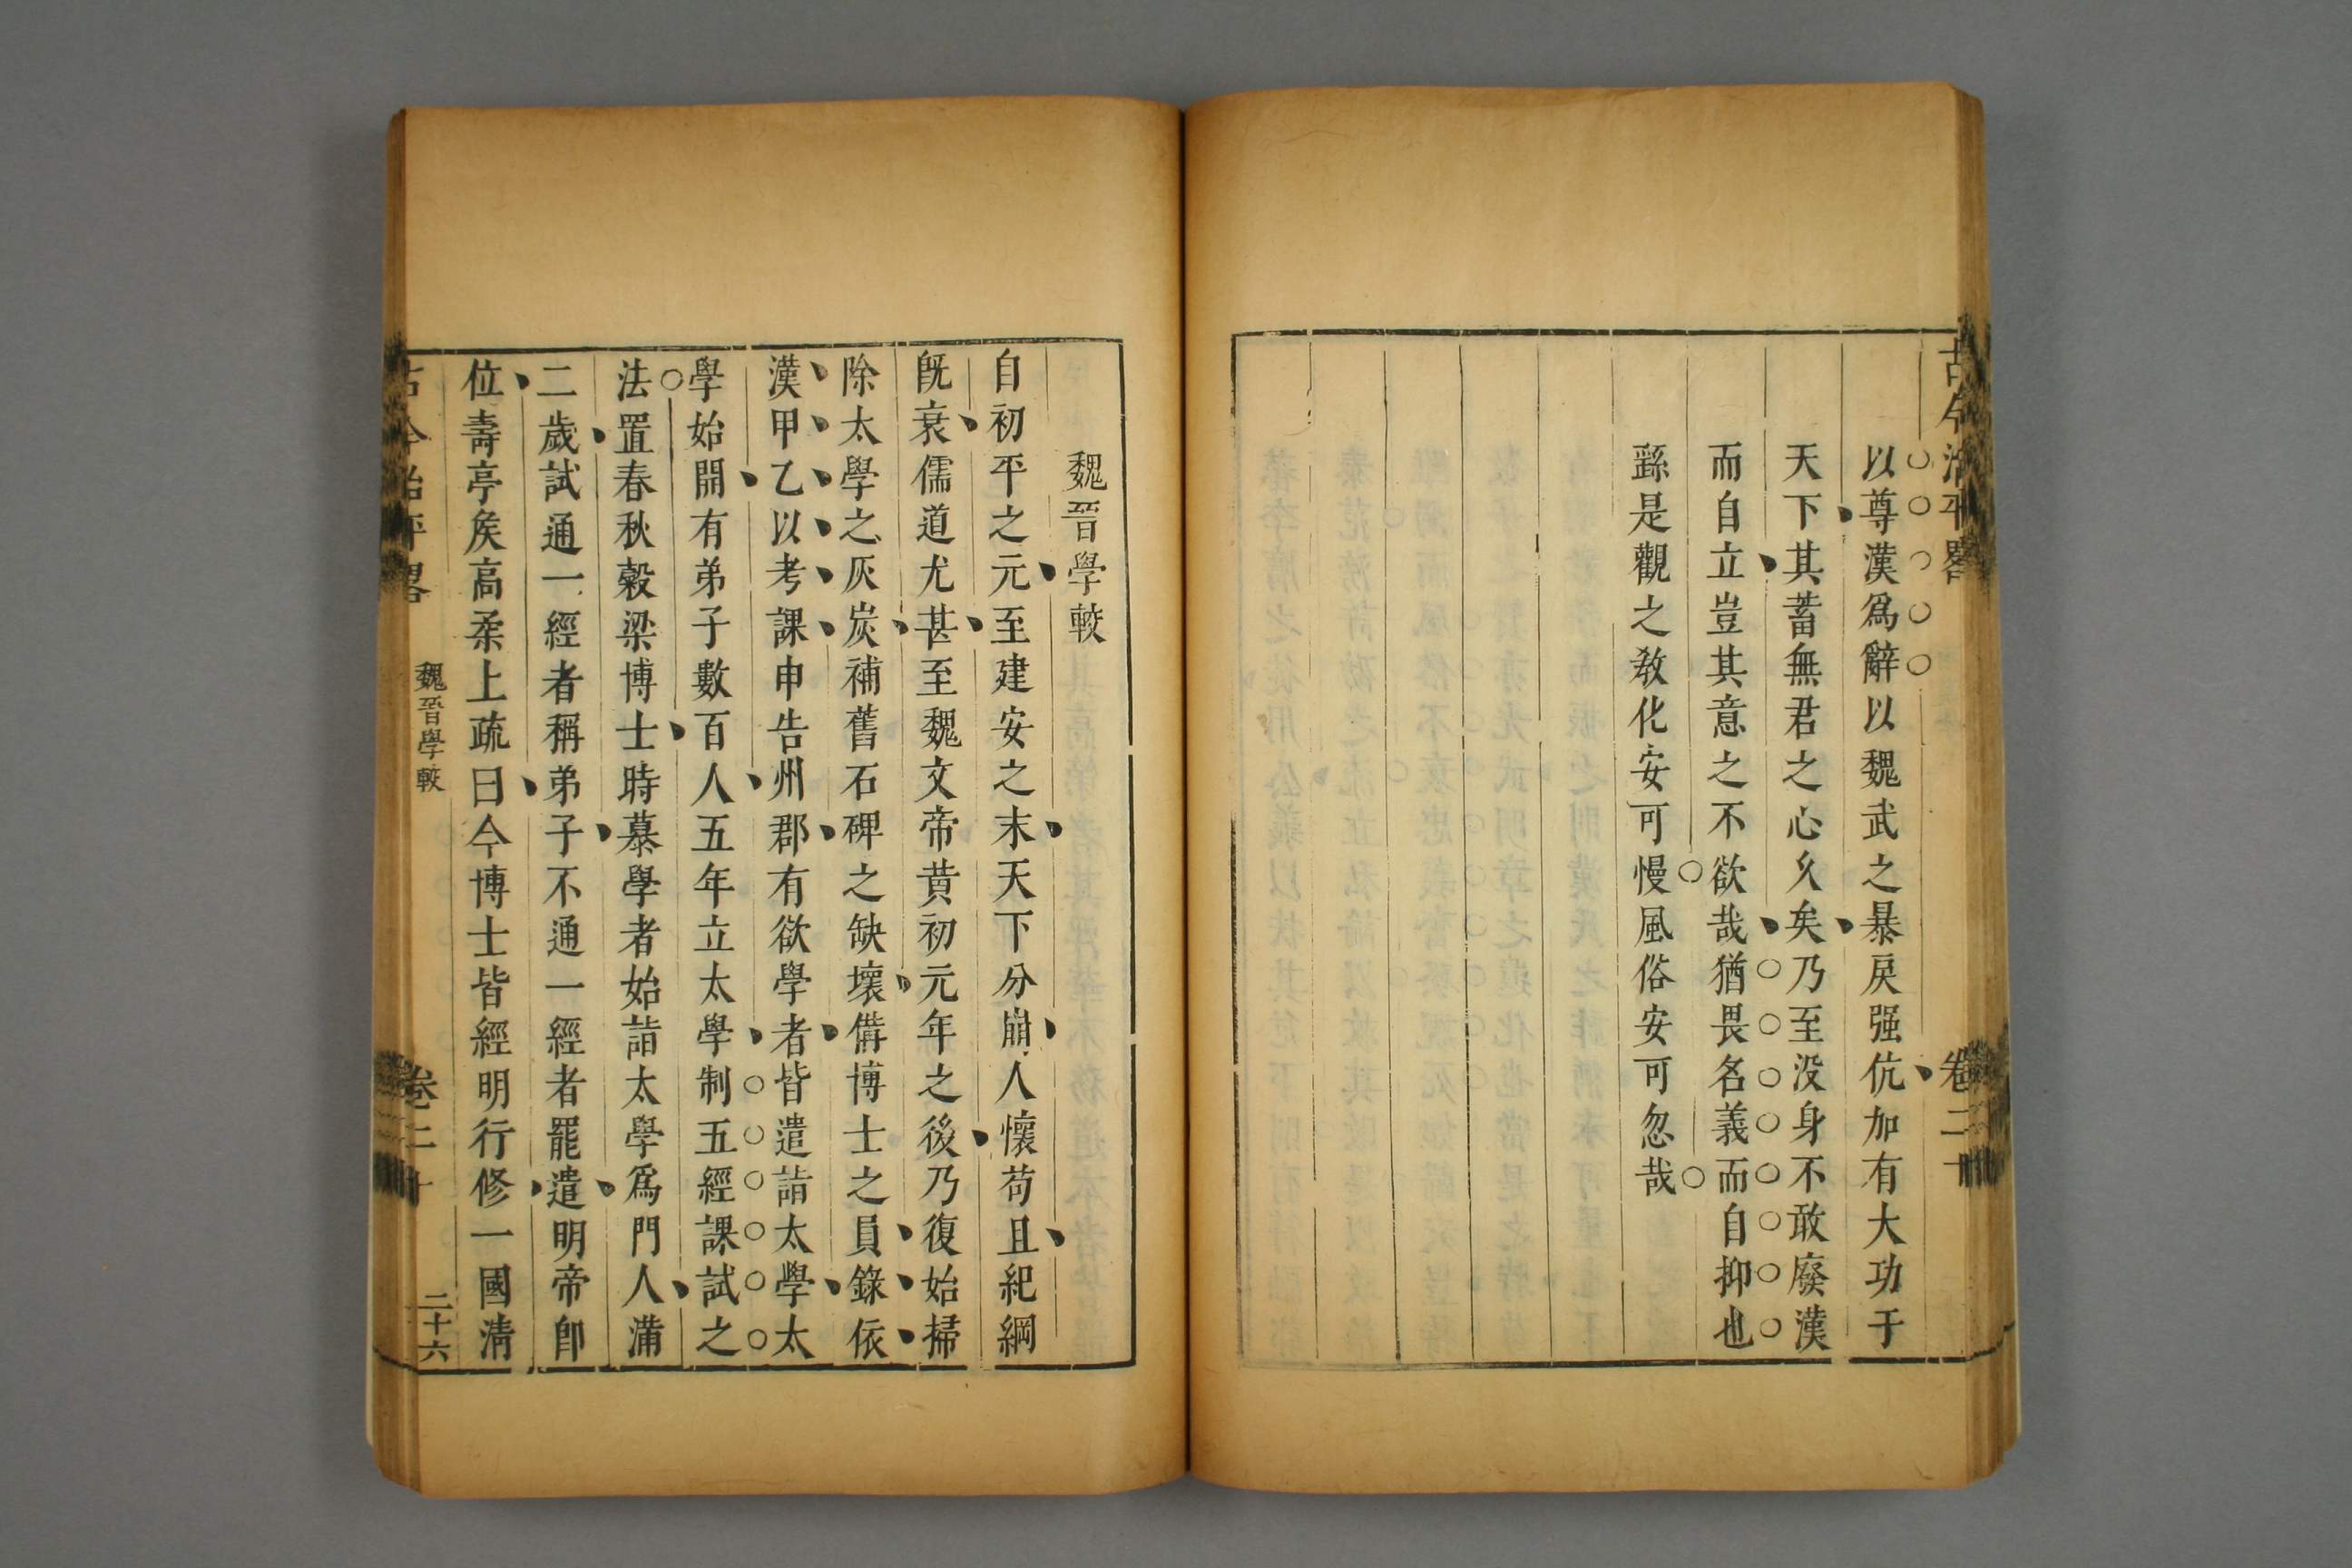 古今治平畧
卷二十
以尊漢爲辭以魏武之暴戾强伉加有大功于
天下其蓄無君之心久矣乃至没身不敢廢漢
而自立豈其意之不欲哉猶畏名義而自抑也
繇是觀之敎化安可慢風俗安可忽哉
魏晉學較
自初平之元至建安之末天下分崩人懷苟且紀綱
旣衰儒道尤甚至魏文帝黄初元年之後乃復始掃
除太學之灰炭補舊石碑之缺壞備博士之員錄依
漢甲乙以考課申告州郡有欲學者皆遣詣太學太
學始開有弟子數百人五年立太學制五經課試之
法置春秋穀梁博士時慕學者始詣太學爲門人滿
二歲試通一經者稱弟子不通一經者罷遣明帝卽
位壽亭矦高柔上疏曰今博士皆經明行修一國清
古今治平畧
魏晉學較
卷二十
二十六